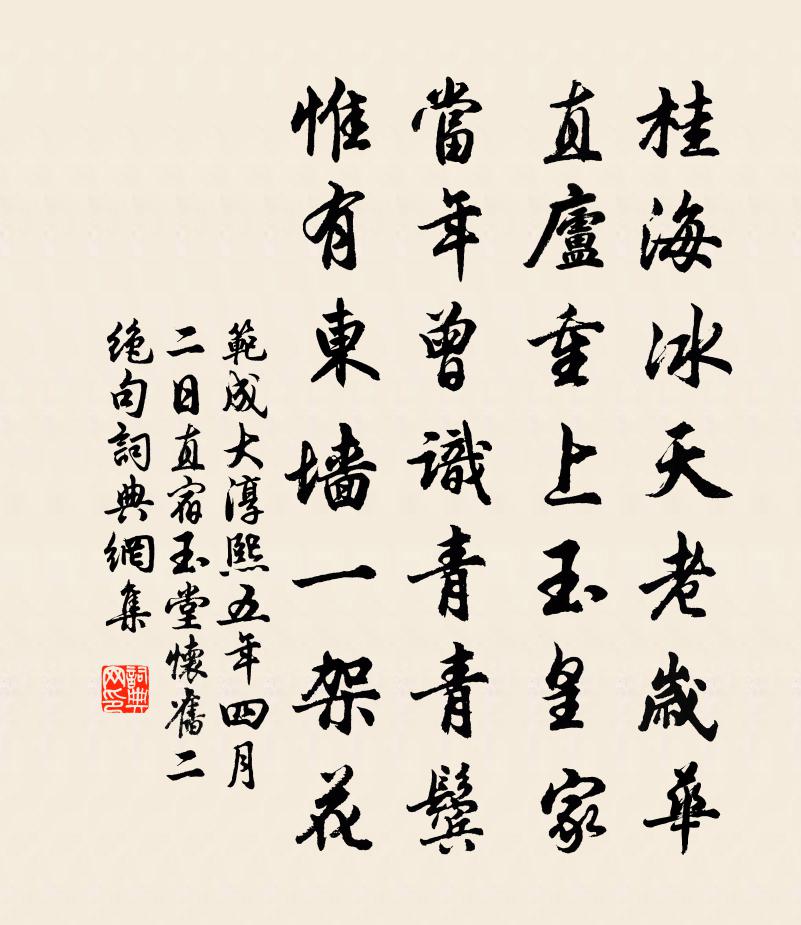 桂海冰天老歲華
直廬重上玉皇家
當年曾識青青鬢
惟有東墻一架花
範成大淳熙五年四月
二日直宿玉堂懷舊二
絕句詞典網集
詞典网印